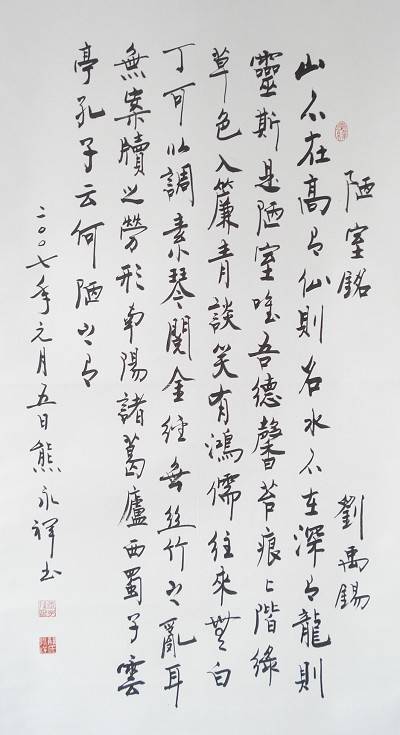 陋室銘 劉禹錫
山不在高有仙則名水不在深有龍則
靈斯是陋室唯吾德馨苔痕上階綠
草色入簾青談笑有鴻儒往來無白
丁可以調素琴閱金經無絲竹之亂耳
無案牘之勞形南陽諸葛廬西蜀子雲
亭孔子云何陋之有
二〇〇七年元月五日熊永祥书